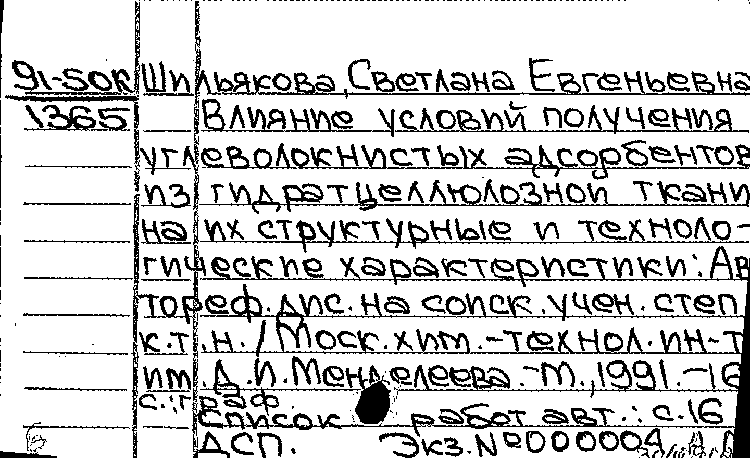 91-50К Шильякова, Светлана Евгеньевна
1365 Влияние условий получения
углеволокнистых адсорбентов
из гидратцеллюлозной ткани
на их структурные и техноло-
гические характеристики: Ав
тореф. дис. на соиск. учен. степ
к.т.н. / Моск. хим.-технол. ин-т
им. Д.И. Менделеева.-М., 1991.-16
с.: граф
Список работ авт.: с.16
ДСП. Экз.№000004